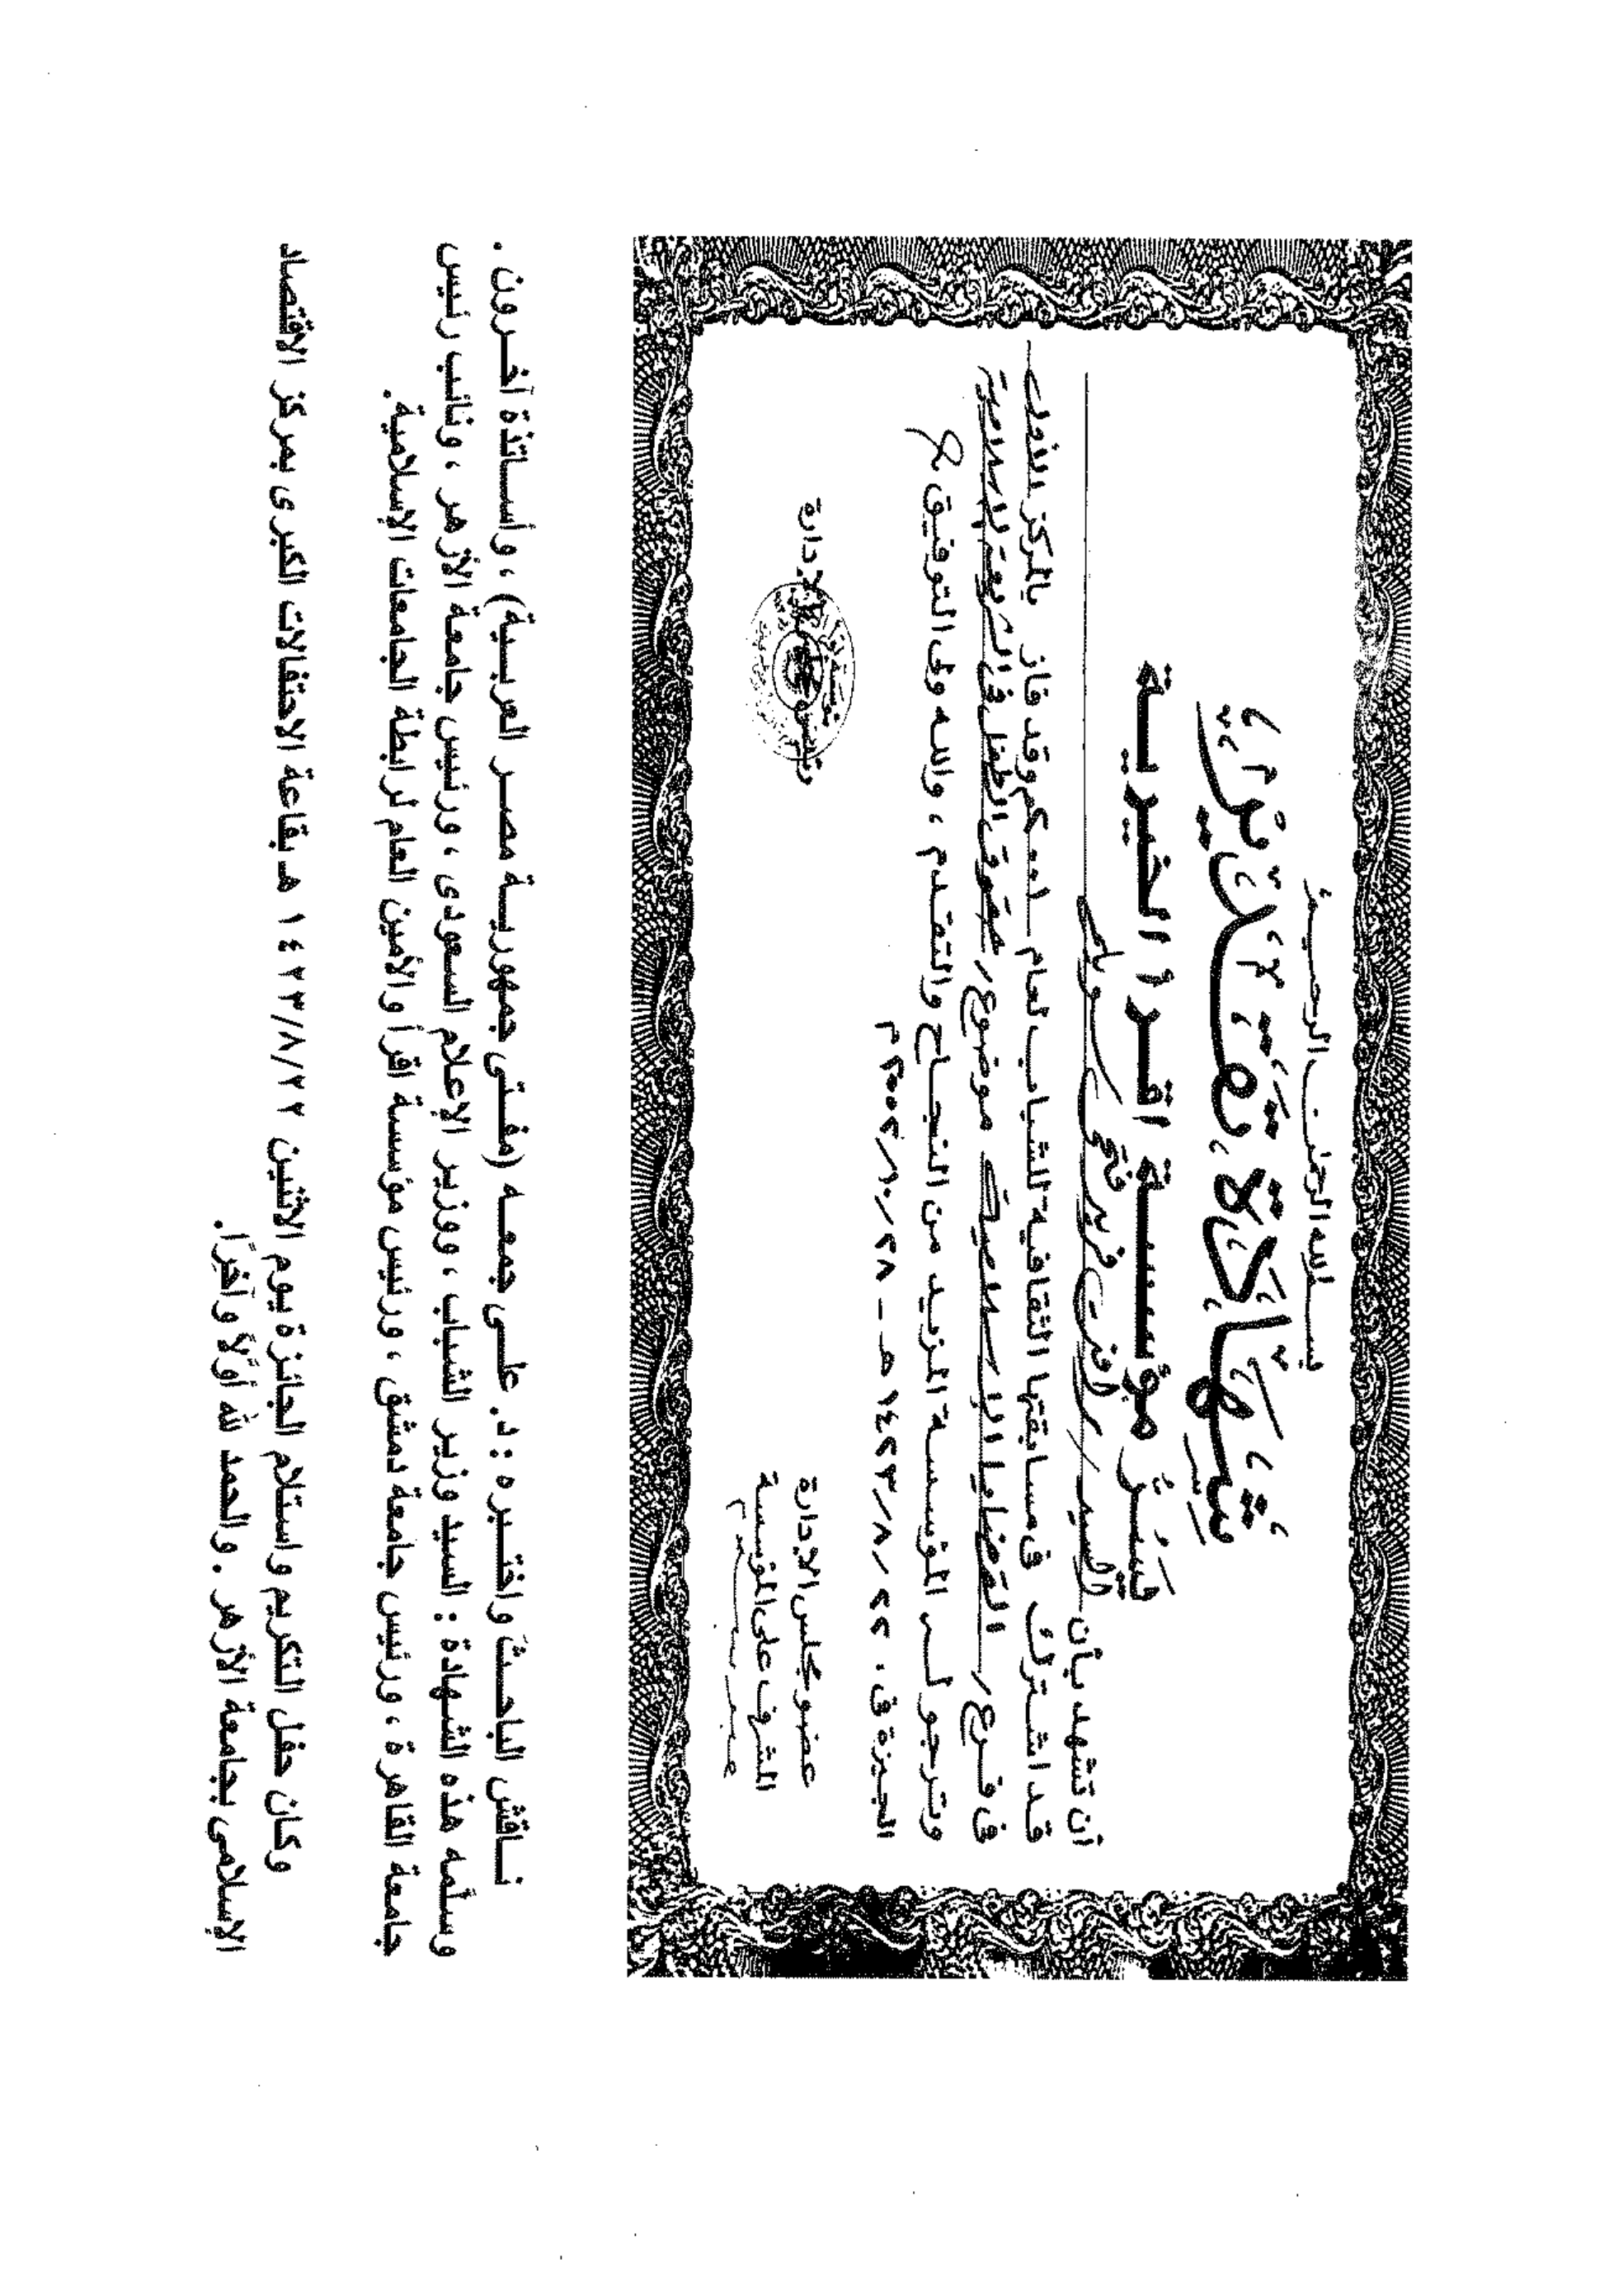 بسم الله الرحمن الرحيم
شهادة تقدير
يسر مؤسسة اقرأ الخيرية
أن تشهد بأن السيد/ رأفت فريد سويلم
قد اشترك في مسابقتها الثقافية للشباب لعام وقد فاز بالمركز الأول
في فرع/ القضايا الإسلامية موضوع/ حقوق الطفل في الشريعة الإسلامية
وترجو لـه المؤسسة المزيد من النجاح والتقدم ، والله ولى التوفيق
الجيزة في . ٢٢/٨/١٤٢٣هـ - ٢٨/١٠/٢٠٠٢م
عضو مجلس الإدارة
رئيس مجلس الإدارة
المشرف على المؤسسة
نـاقش الباحـث واختـبره : د. علـى جمعـه (مفـتى جمهوريـة مصـر العربـية) ، وأسـاتذة آخـرون .
وسلمه هذه الشهادة : السيد وزير الشباب ، ووزير الإعلام السعودى ، ورئيس جامعة الأزهر ، ونائب رئيس
جامعة القاهرة ، ورئيس جامعة دمشق ، ورئيس مؤسسة اقرأ والأمين العام لرابطة الجامعات الإسلامية.
وكان حفل التكريم واستلام الجائزة يوم الاثنين ١٤٢٣/٨/٢٢ هـ بقاعة الاحتفالات الكبرى بمركز الاقتصاد
الإسلامى بجامعة الأزهر . والحمد لله أولاً وآخرًا.